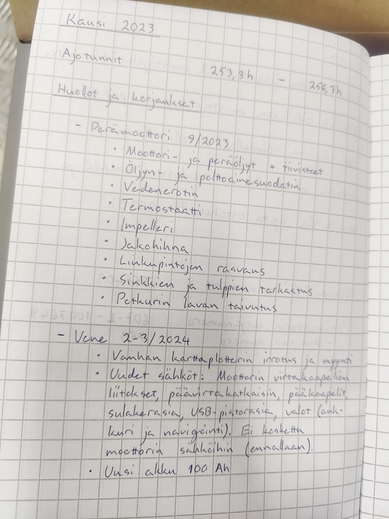 Kausi 2023
Ajotunnit 253,3h – 256,3h
Huollot ja korjaukset
- Perämoottori 9/2023
• Moottori- ja peräöljyt + tiivisteet
• Öljyn- ja polttoainesuodatin
• Vedenerotin
• Termostaatti
• Impelleri
• Jakohihna
• Liukupintojen rasvaus
• Sinkkien ja tulppien tarkastus
• Potkurin lavan taivutus
- Vene 2-3/2024
• Vanhan karttaplotterin irrotus ja myynti
• Uudet sähköt: Moottorin virtakaapelien
liitokset, päävirtakatkaisin, pääkaapelit,
sulakerasia, USB-pistorasia, valot (ank-
kuri ja navigointi). Ei koskettu
moottorin sähköihin (ennallaan).
• Uusi akku 100 Ah